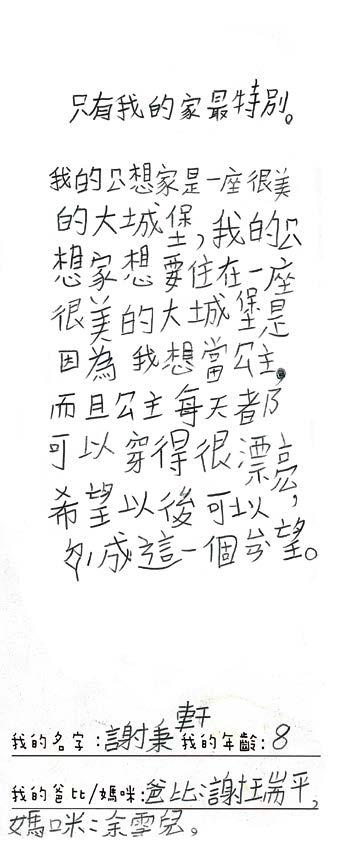 只有我的家最特別。
我的公想家是一座很美
的大城堡,我的公
想家想要住在一座
很美的大城堡是
因為我想當公主,
而且公主每天都
可以穿得很漂亮,
希望以後可以
成這一個 望。
我的名字:謝秉軒 我的年齡:8
我的爸比/媽咪:爸比:謝瑞平,
媽咪:余雪兒。